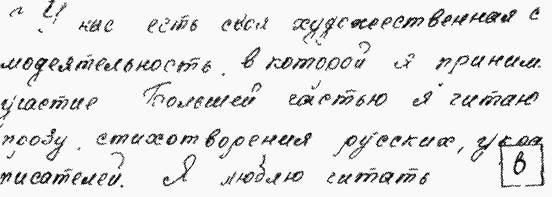 У нас есть своя художественная с
модеятельность. в которой я приним
участие Большей частью я читаю
прозу. стихотворения русских, укра
писателей. Я люблю читать
в